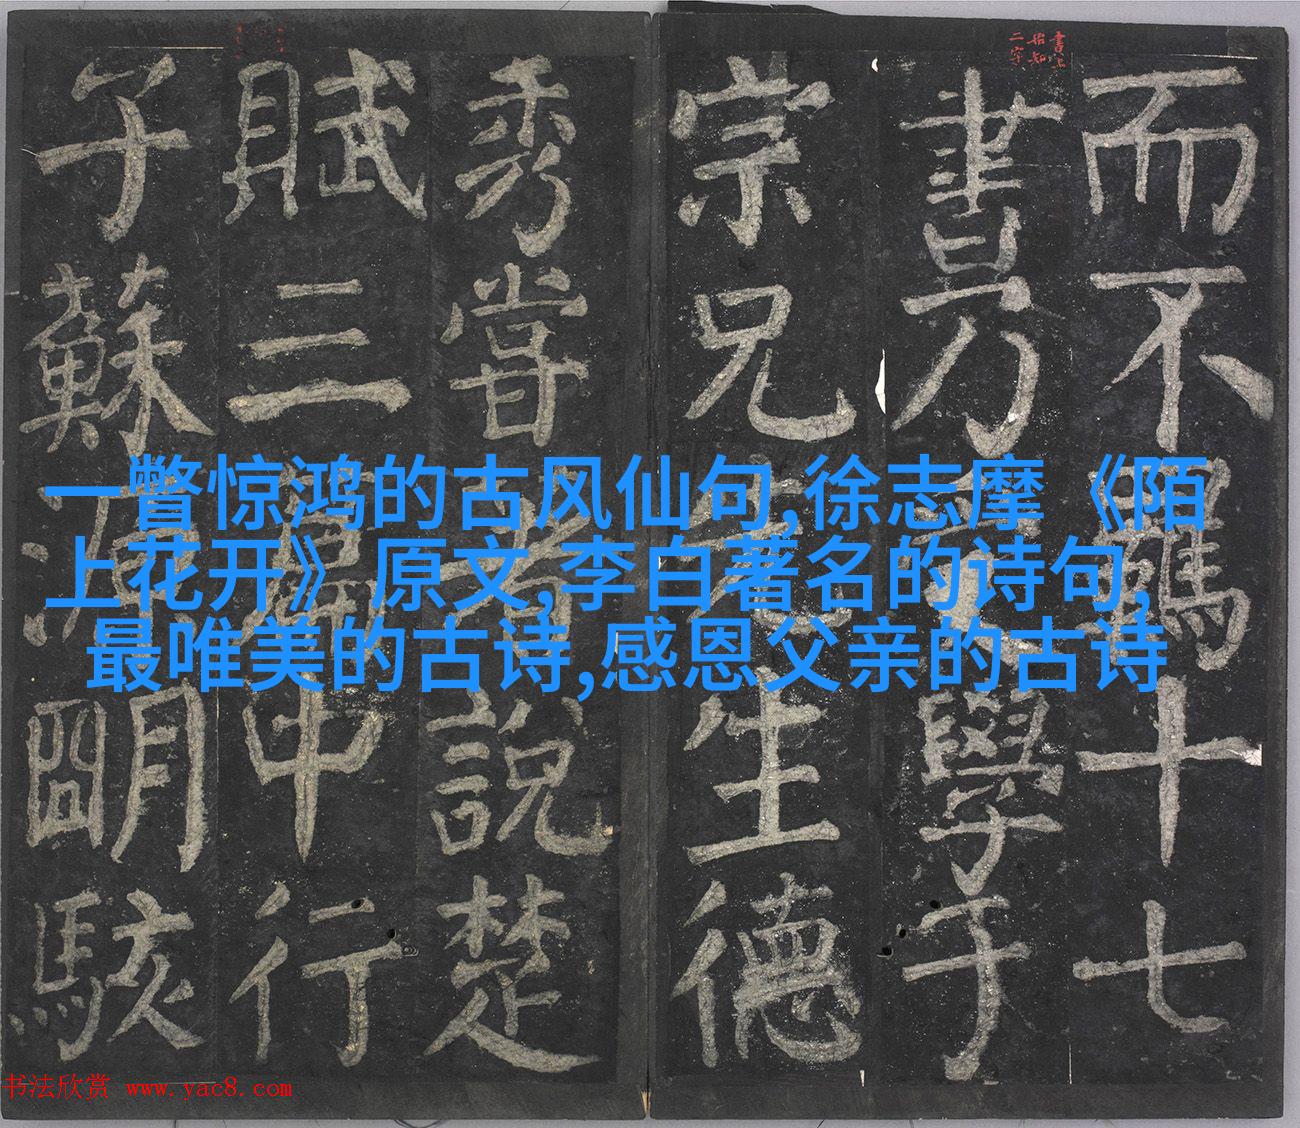 而不羈十七
書乃學于
宗兄生德
秀嘗說楚
賦三中行
子蘇源明駭
一瞥惊鸿的古风仙句,徐志摩《陌
上花开》原文,李白著名的诗句,
最唯美的古诗,感恩父亲的古诗
书法欣赏 www.yac8.com